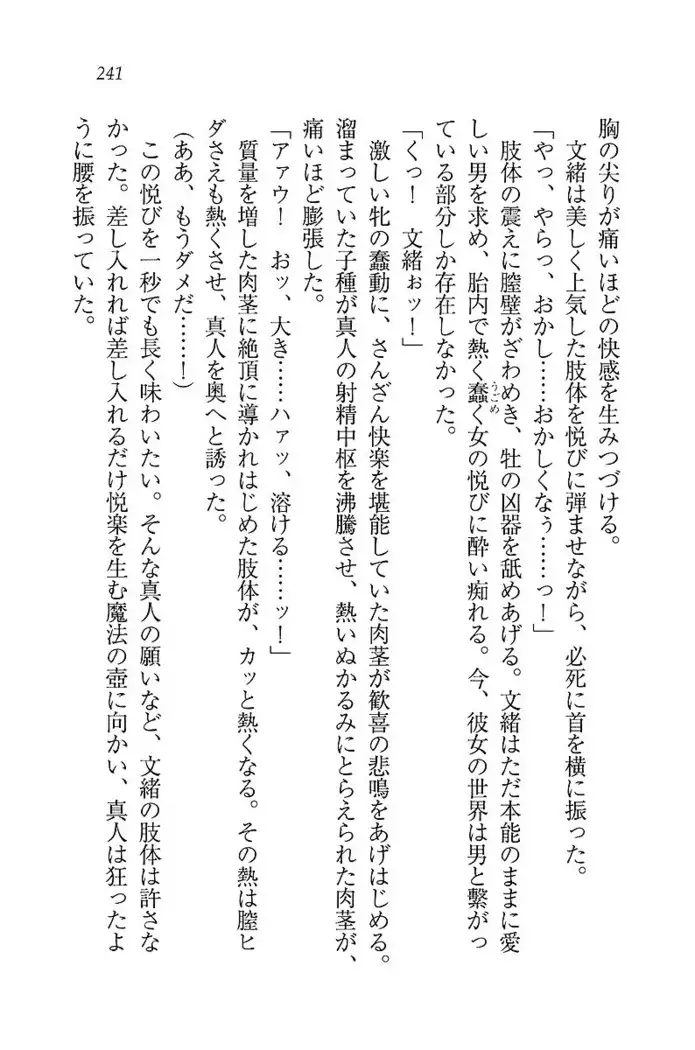 241
胸の尖りが痛いほどの快感を生みつづける。
文緒は美しく上気した肢体を悦びに弾ませながら、必死に首を横に振った。
「やっ、やらっ、おかし……おかしくなぅ……っ！」
肢体の震えに膣壁がざわめき、牡の凶器を舐めあげる。文緒はただ本能のままに愛
しい男を求め、胎内で熱く蠢く女の悦びに酔い痴れる。今、彼女の世界は男と繋がっ
うごめ
ている部分しか存在しなかった。
「くっ！　文緒ぉッ！」
激しい牝の蠢動に、さんざん快楽を堪能していた肉茎が歓喜の悲鳴をあげはじめる。
溜まっていた子種が真人の射精中枢を沸騰させ、熱いぬかるみにとらえられた肉茎が、
痛いほど膨張した。
「アァウ！　おッ、大き……ハァッ、溶ける……ッ！」
質量を増した肉茎に絶頂に導かれはじめた肢体が、カッと熱くなる。その熱は膣ヒ
ダさえも熱くさせ、真人を奥へと誘った。
（ああ、もうダメだ……！）
この悦びを一秒でも長く味わいたい。そんな真人の願いなど、文緒の肢体は許さな
かった。差し入れれば差し入れるだけ悦楽を生む魔法の壺に向かい、真人は狂ったよ
うに腰を振っていた。